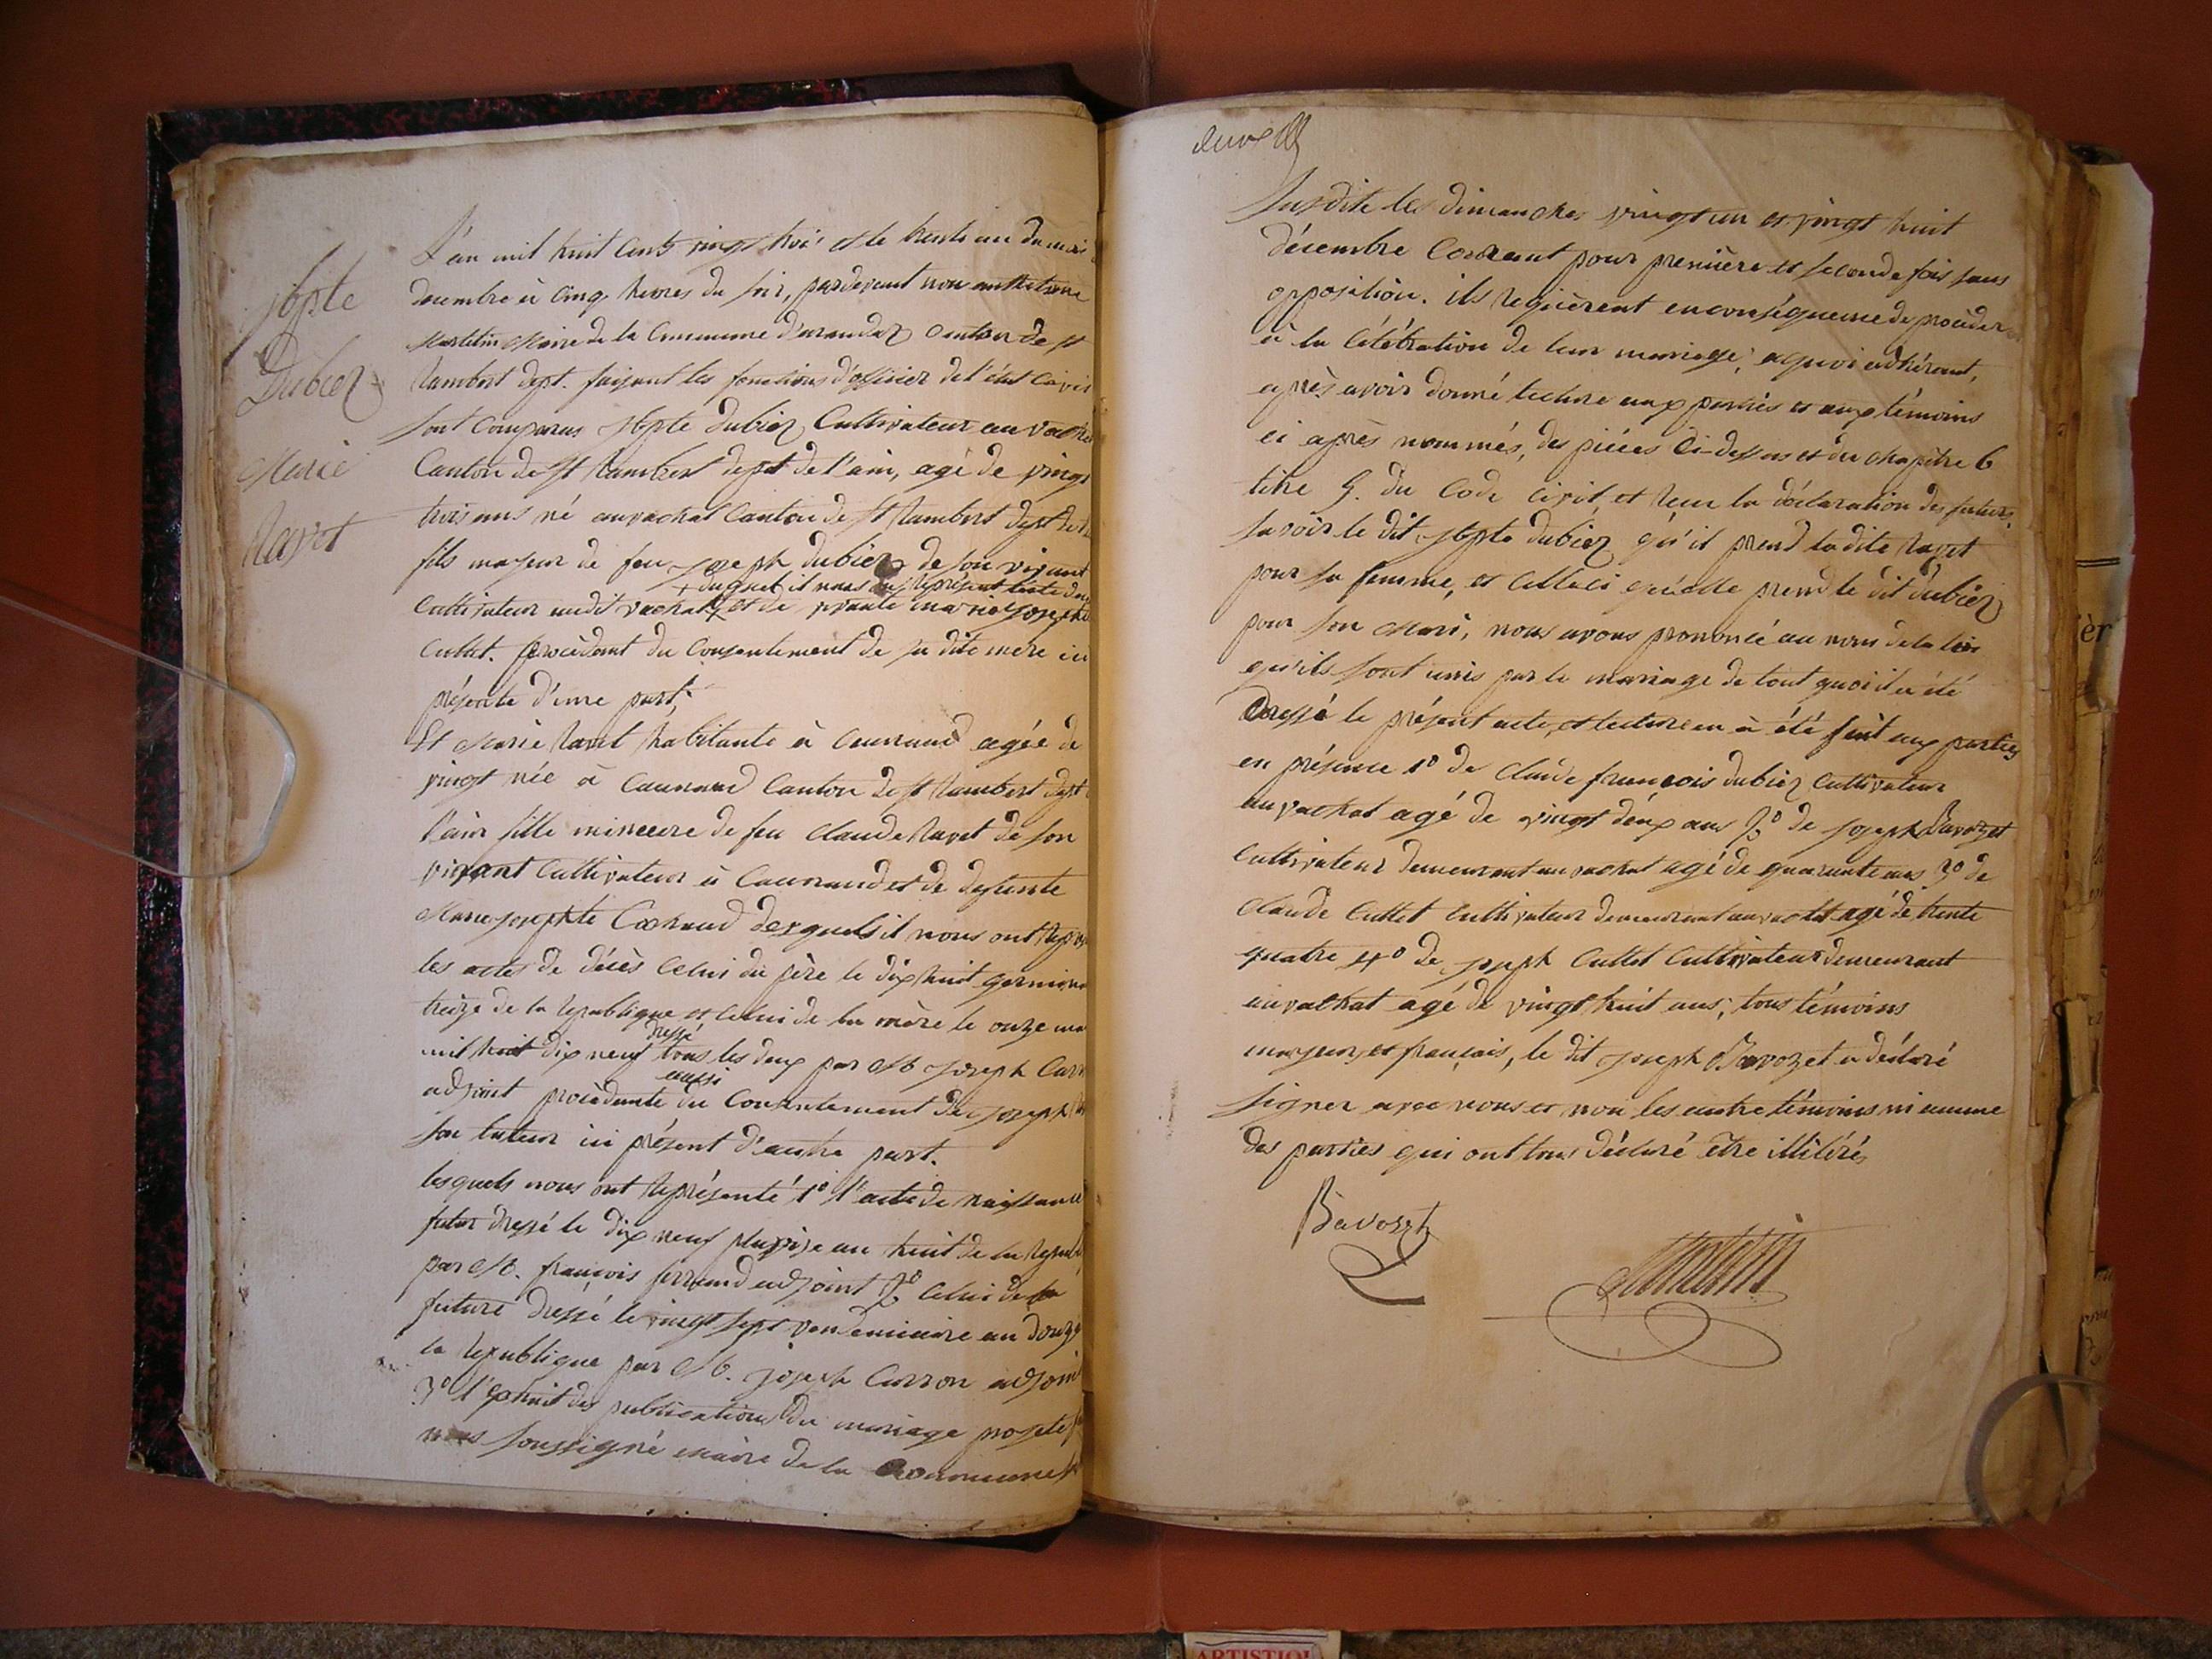 jbpte
Dubiez
Marie
Ravet
L'an mil huit cents vingt trois et le trente un du mois
decembre à cinq heures du soir, pardevant nous anthelme
Martelin Maire de la Commune d'arandaz Canton de st
Rambert dept. faisant les fonctions d'officier de l'état civil
sont comparus jbpte dubiez Cultivateur au vachat
Canton de st Rambert dept de l'ain, agé de vingt
trois ans né au vachat Canton de st Rambert dept de l
fils majeur de feu joseph dubiez de son vivant
+ duquel il nous represent
cultivateur audit vachat + et de vivante marie josephte
Cullet. procèdant du Consentement de sa dite mere ici
présente d'une part,
Et Marie Ravet habitante à Caunand agée de
vingt née à Caunand Canton de st Rambert dept
l'ain fille mineure de feu Claude Ravet de son
vivant Cultivateur à Caunand et de defunte
Marie josephte desquels il nous ont repr
les actes de décès celui du père le dix huit germinal
treize de la republique et celui de la mère le onze ma
dressé
mil huit dix neuf tous les deux par Mr joseph Carr
aussi
adjoint procèdante du Consentement de joseph
son tuteur ici présent d'autre part.
lesquels nous ont représenté 1º l'acte de naissance
futur dressé le dix neuf pluviose an huit de la republ
par Mr. françois ferrand adjoint 2º celui de la
future dressé le vingt sept vendemiaire an douze
la republique par Mr. joseph Carron adjoint
3º l'extrait des publications du mariage projeté
nous soussigné maire de la Commune
deux
Susdite les dimanches vingt un et vingt huit
décembre Courant pour première et seconde fois sans
opposition. ils requièrent en conséquence de procéder
à la célébration de leur mariage, aquoi adhérant,
après avoir donné lecture aux parties et aux témoins
ci après nommés, des pièces ci-dessus et du chapitre 6
titre 5. du Code Civil, et reçu la déclaration des futurs,
savoir le dit jbpte dubiez qu'il prend la dite Ravet
pour sa femme, et celle ci qu'elle prend le dit dubiez
pour son Mari, nous avons prononcé au nom de la loi
qu'ils sont unis par le mariage de tout quoi il a été
Dressé le présent acte, et lecture en à été fait aux parties
en présence 1º de Claude françois dubiez Cultivateur
au vachat agé de vingt deux ans 2º de joseph Bavozet
Cultivateur demeurant au vachat agé de quarante ans 3º de
Claude Cullet Cultivateur demeurant au vachat agé de trente
quatre 4º de joseph Cullet Cultivateur demeurant
au vachat agé de vingt huit ans, tous témoins
majeurs et français, le dit joseph Bavozet a déclaré
signer avec nous et non les autre témoins ni aucune
des parties qui ont tous déclaré être illitérés
Bavozet
Martelin
èr
ARTISTIQU